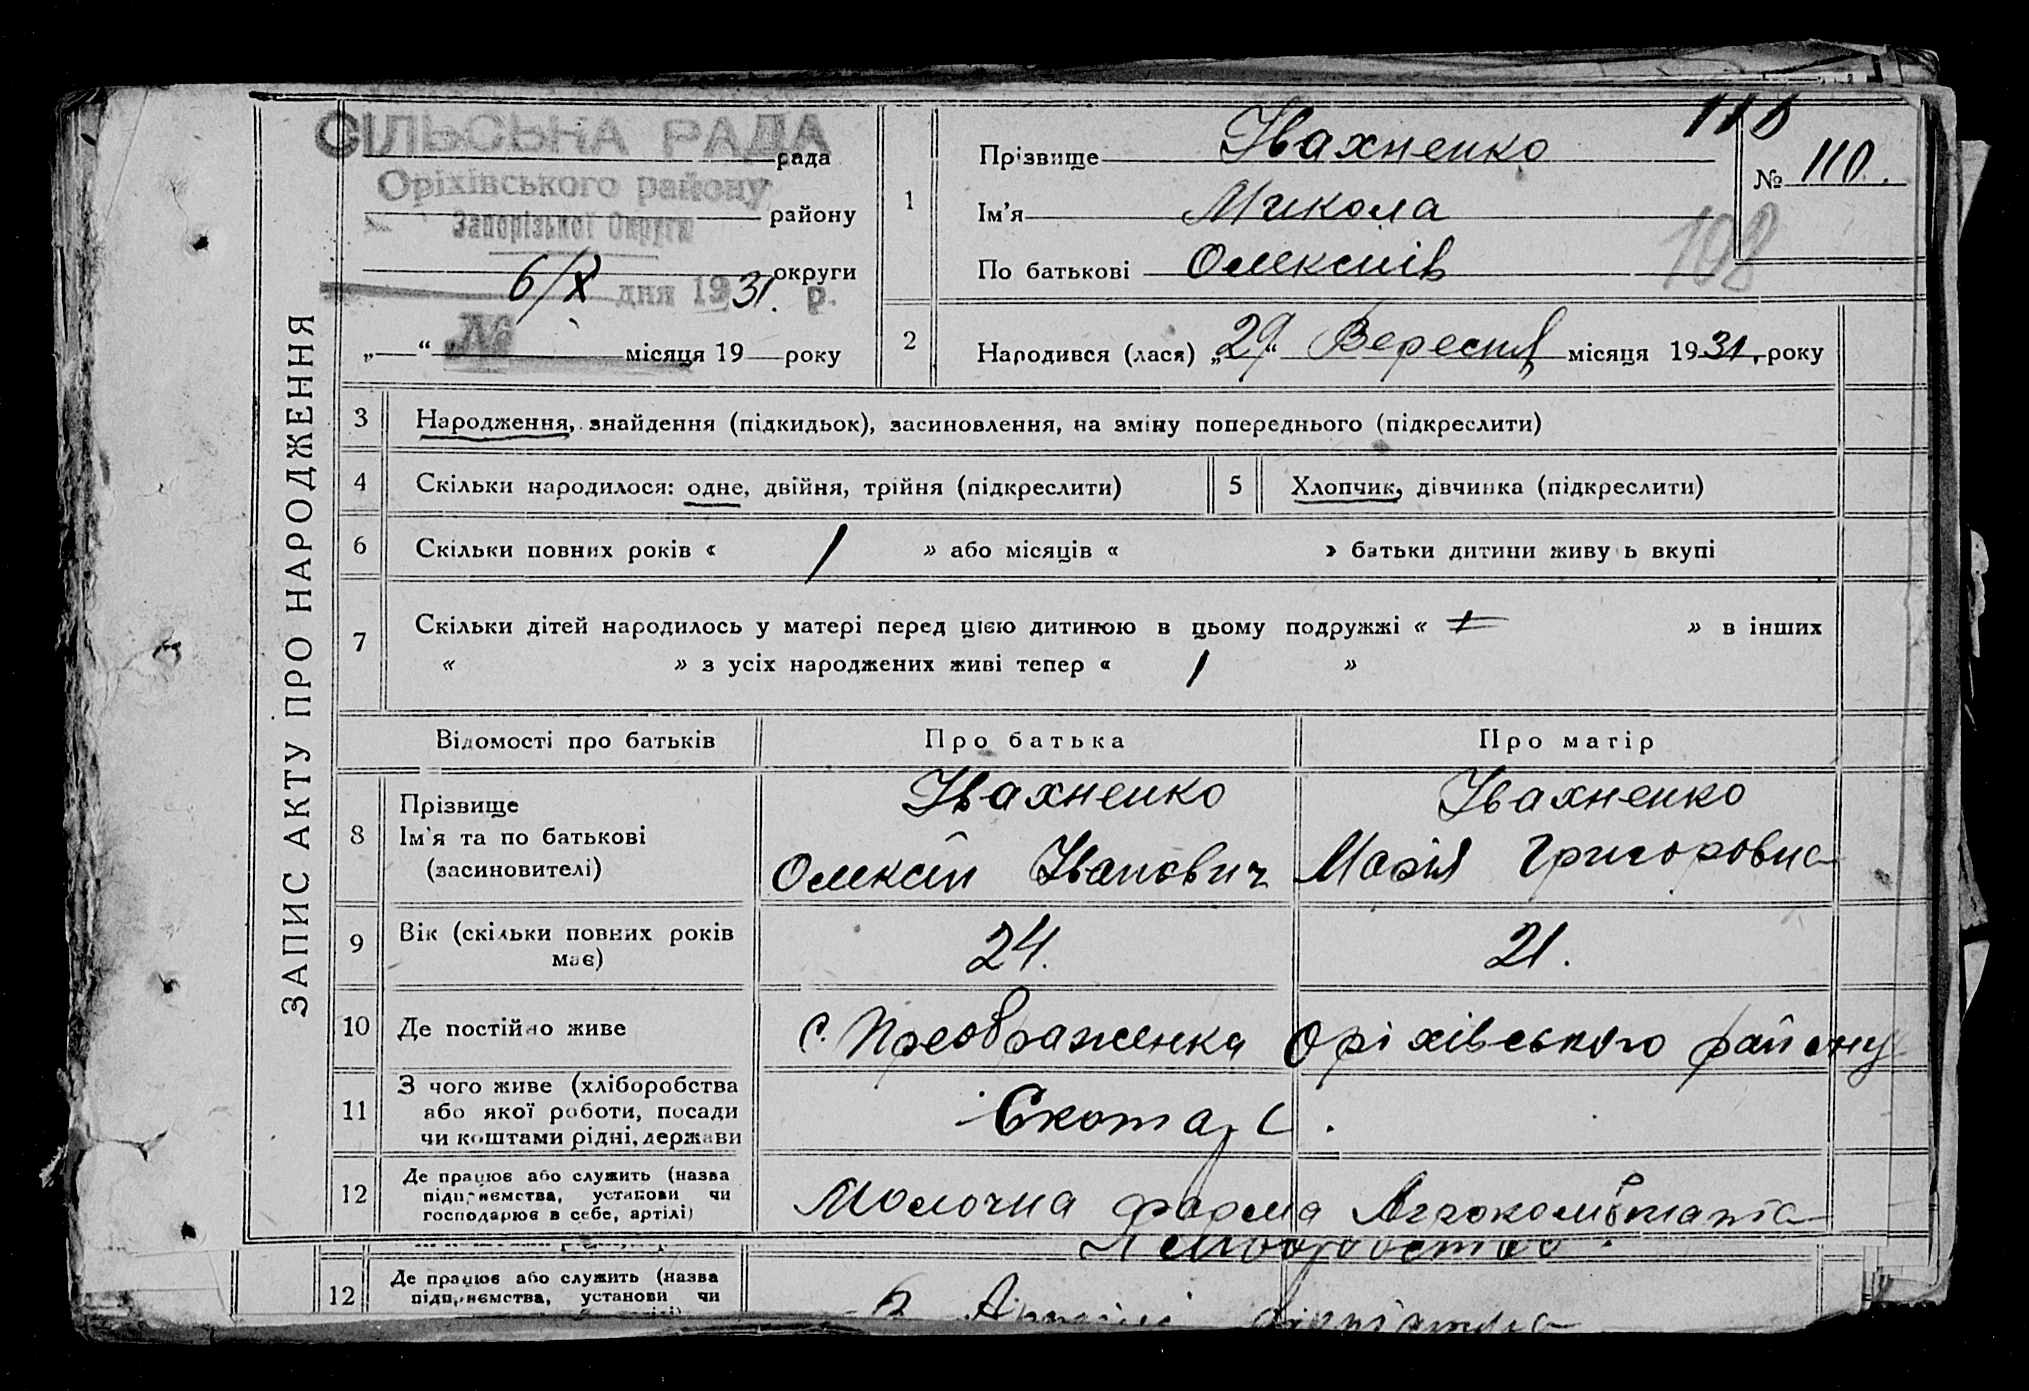 ЗАПИС АКТУ ПРО НАРОДЖЕННЯ
СІЛЬСЬКА РАДА
рада
Оріхівського району
району
Запорізької Округи
округи
6/X дня 1931. р.
№
„ “ місяця 19 року
118
1 Прізвище Івахненко
№ 110.
Ім'я Микола
108
По батькові Олексіїв
2 Народився (лася) „29“ Вересня місяця 1931. року
3 Народження, знайдення (підкидьок), засиновлення, на зміну попереднього (підкреслити)
4 Скільки народилося: одне, двійня, трійня (підкреслити) 5 Хлопчик, дівчинка (підкреслити)
6 Скільки повних років « 1 » або місяців « » батьки дитини живу ь вкупі
7 Скільки дітей народилось у матері перед цією дитиною в цьому подружжі « » в інших
« » з усіх народжених живі тепер « 1 »
Відомості про батьків Про батька Про матір
8 Прізвище Івахненко Івахненко
Ім'я та по батькові Олексій Іванович Марія Григоровна
(засиновителі)
9 Вік (скільки повних років має) 24. 21.
10 Де постійно живе с. Преображенка Оріхівського району
11 З чого живе (хліборобства
або якої роботи, посади
чи коштами рідні, держави
Скотар.
12 Де працює або служить (назва
підприємства, установи чи
господарює в себе, артілі)
Молочна ферма
12 Де працює або служить (назва
підприємства, установи чи